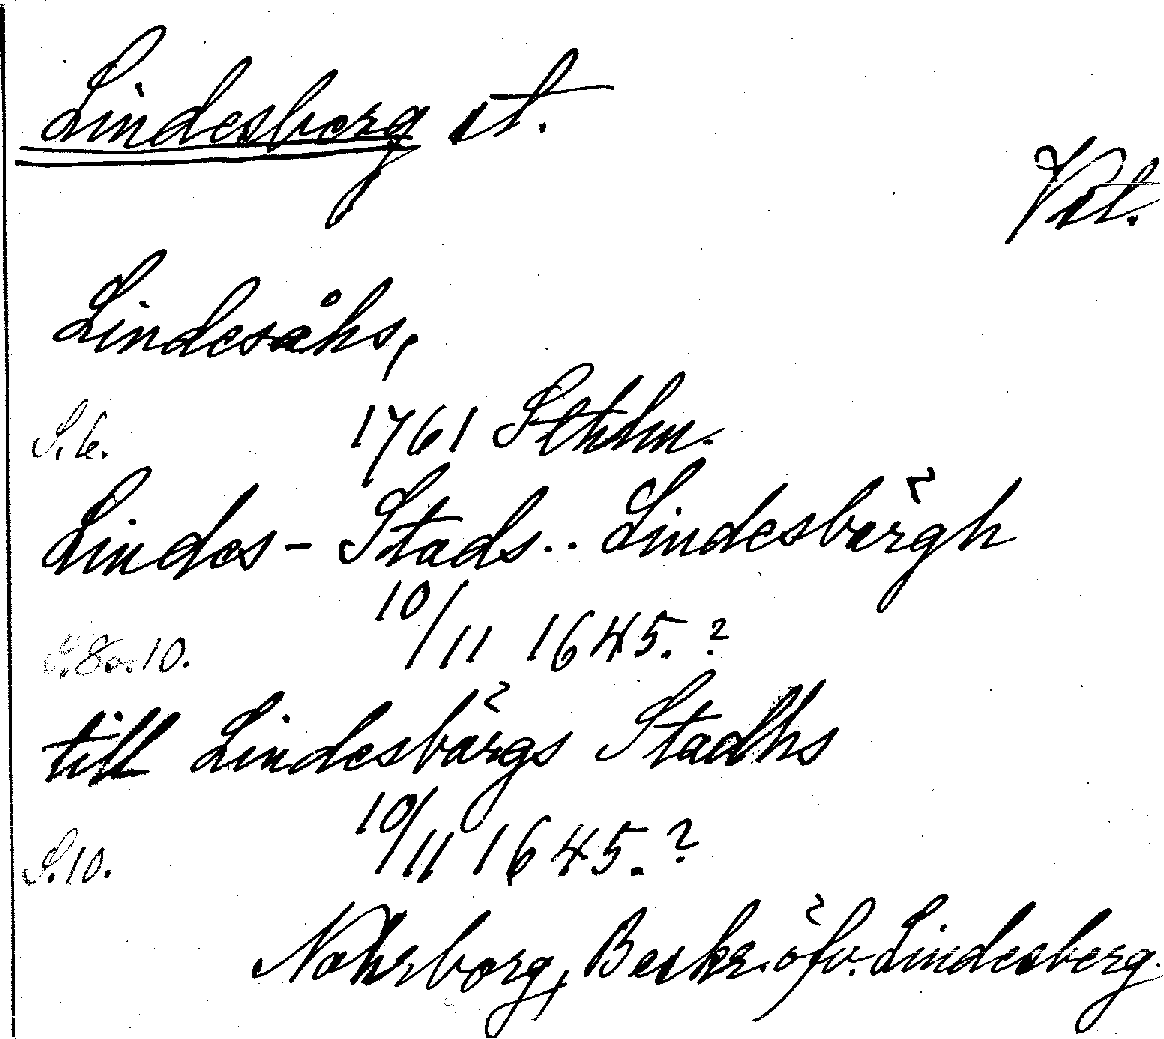 Lindesberg st.
Vstl.
Lindesåhs,
S. 6. 1761 Sthlm.
Lindes-Stads.. Lindesbärgh
S. 8 o. 10. 10/11 1645.?
till Lindesbärgs Stadhs
S. 10. 10/11 1645.?
Nohrborg, Beskr. öfv. Lindesberg.